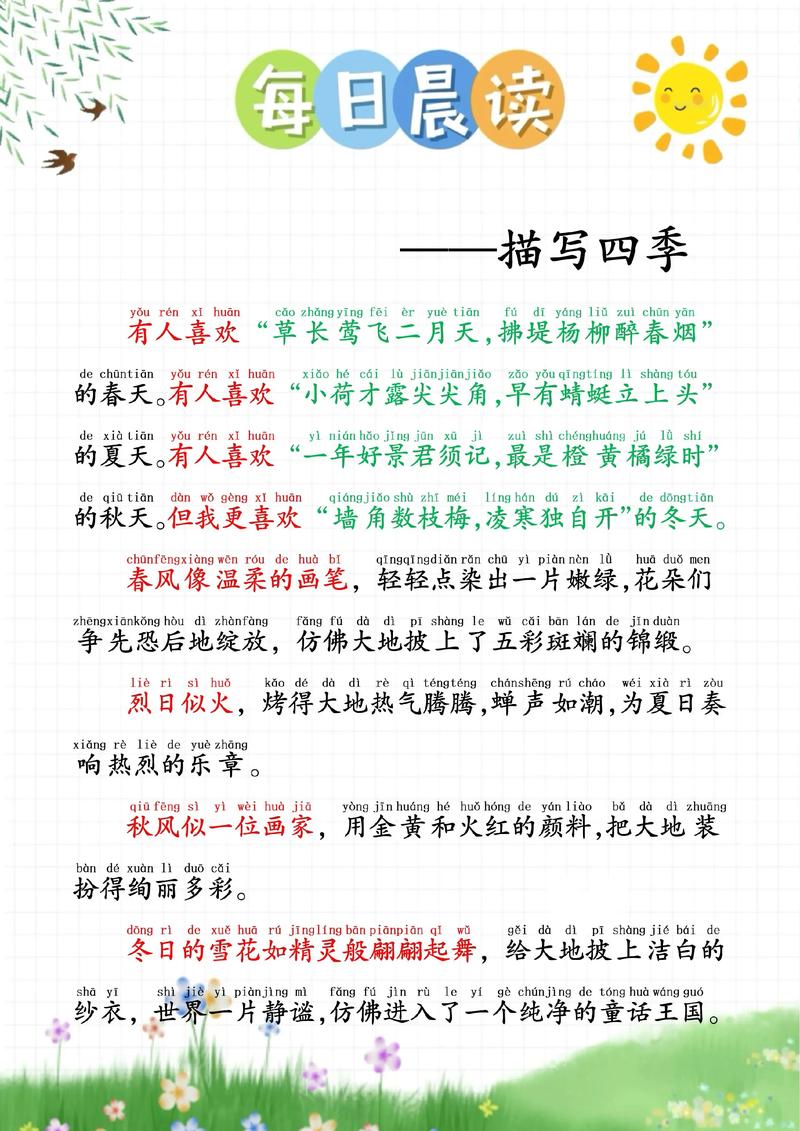 每日晨读
——描写四季
yǒu rén xǐ huān cǎo zhǎng yīng fēi èr yuè tiān fú dī yáng liǔ zuì chūn yān
有人喜欢“草长莺飞二月天,拂堤杨柳醉春烟”
de chūn tiān yǒu rén xǐ huān xiǎo hé cái lù jiān jiān jiǎo zǎo yǒu qīng tíng lì shàng tóu
的春天。有人喜欢“小荷才露尖尖角,早有蜻蜓立上头”
de xià tiān yǒu rén xǐ huān yì nián hǎo jǐng jūn xū jì zuì shì chéng huáng jú lǜ shí
的夏天。有人喜欢“一年好景君须记,最是橙黄橘绿时”
de qiū tiān dàn wǒ gèng xǐ huān qiáng jiǎo shù zhī méi líng hán dú zì kāi de dōng tiān
的秋天。但我更喜欢“墙角数枝梅,凌寒独自开”的冬天。
chūn fēng xiàng wēn róu de huà bǐ qīng qīng diǎn rǎn chū yì piàn nèn lǜ huā duǒ men
春风像温柔的画笔，轻轻点染出一片嫩绿,花朵们
zhēng xiān kǒng hòu dì zhàn fàng fǎng fú dà dì pī shàng le wǔ cǎi bān lán de jǐn duàn
争先恐后地绽放，仿佛大地披上了五彩斑斓的锦缎。
liè rì sì huǒ kǎo dé dà dì rè qì téng téng chán shēng rú cháo wéi xià rì zòu
烈日似火，烤得大地热气腾腾,蝉声如潮,为夏日奏
xiǎng rè liè de yuè zhāng
响热烈的乐章。
qiū fēng sì yì wèi huà jiā yòng jīn huáng hé huǒ hóng de yán liào bǎ dà dì zhuāng
秋风似一位画家，用金黄和火红的颜料,把大地装
bàn dé xuàn lì duō cǎi
扮得绚丽多彩。
dōng rì de xuě huā rú jīng líng bān piān piān qǐ wǔ gěi dà dì pī shàng jié bái de
冬日的雪花如精灵般翩翩起舞，给大地披上洁白的
shā yī shì jiè yì piàn jìng mì fǎng fú jìn rù le yí gè chún jìng de tóng huà wáng guó
纱衣，世界一片静谧,仿佛进入了一个纯净的童话王国。